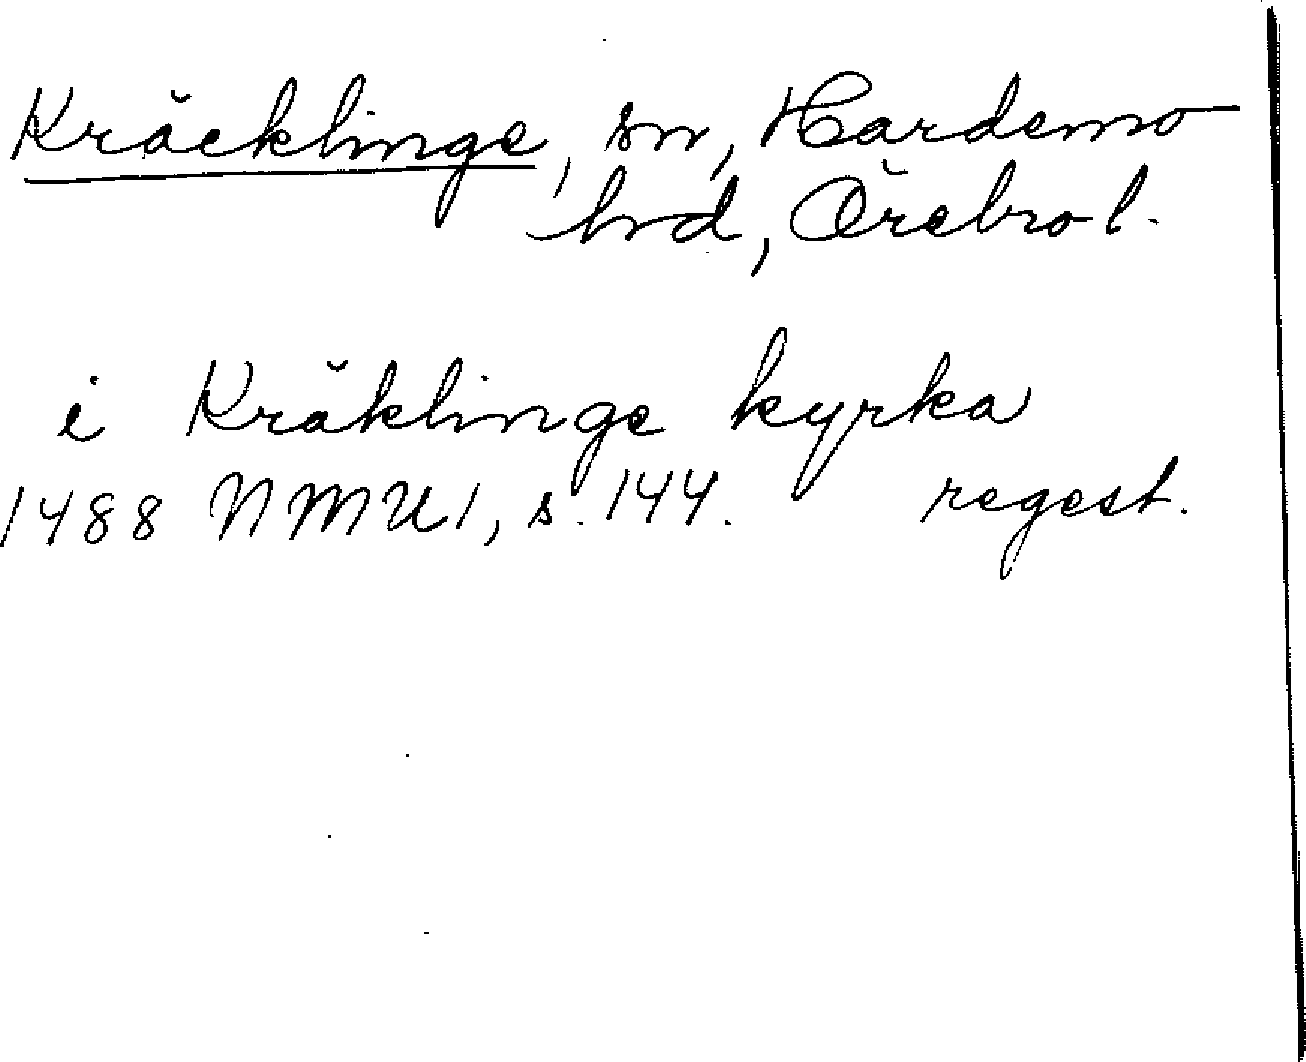 Kräcklinge, sn, Hardemo
hrd, Örebro l.
i Kräklinge kyrka
1488 NMU 1, s. 144. regest.